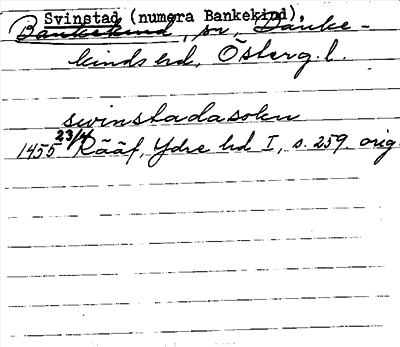 Svinstad (numera Bankekind),
Bankekind, sn, Banke-
kinds hd, Österg. l.
swinstadasokn
1455 23/4 Rääf, Ydre hd I, s. 259. orig.